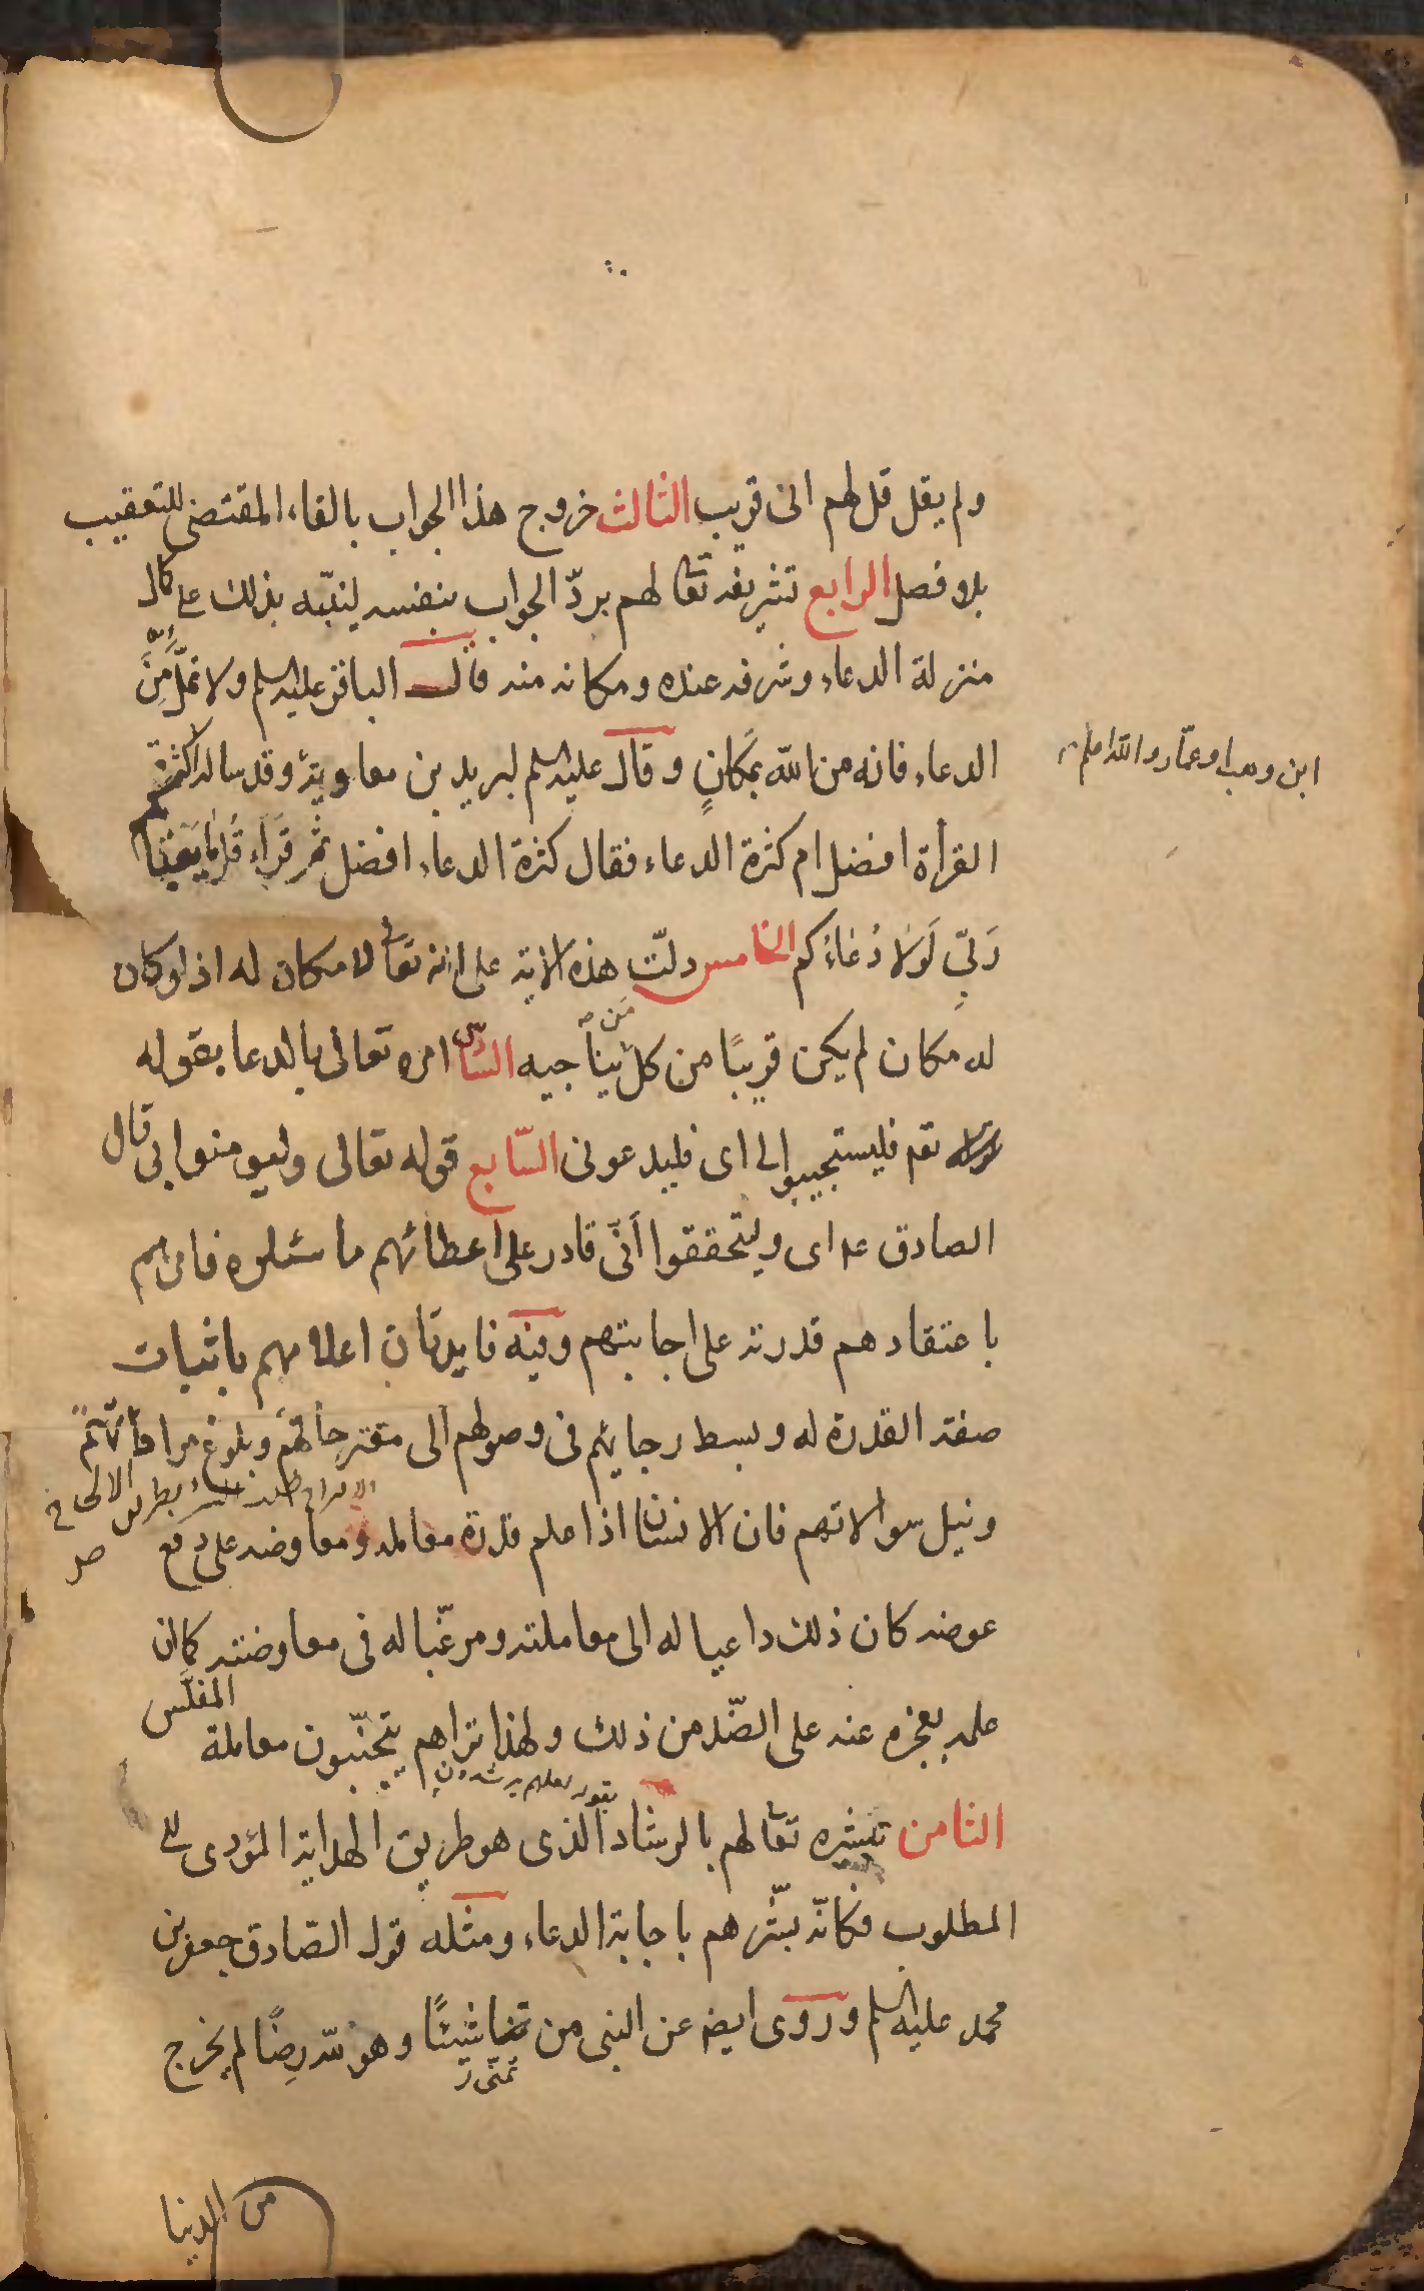 ولم يقل قل لهم انى قريب الثالث خروج هذا الجواب بالفاء المقتضى للتعقيب
بلا فصل الرابع تشريفه تعا لهم بردّ الجواب بنفسه لينبّه بذلك على كمال
منزلة الدعاء وشرفه عنده ومكانه منه قال الباقر عليه السلم ولا تملَّ مِنَ
الدعاء فانه من الله بمَكانٍ وقال عليه السلم لبريد بن معاوية وقد ساله اكثرة
ابن وهب او عمّار والله اعلم
القرأة افضل ام كثرة الدعاء فقال كثرة الدعاء افضل ثم قَرَاء قُل ما يَعبَؤا
رَبّي لَوَلا دُعَاءُكم الخامس دلّت هذه الاية على انه تعالى لا مكان له اذ لو كان
له مكان لم يكن قريبًا من كل من يناجيه السّادس امره تعالى بالدعا بقوله
تعم فليستجيبوا لى اى فليدعونى السّابع قوله تعالى وليومنوا بى قال
الصادق ع اى وليتحققوا أنّى قادر على اعطائهم ما سئلوه فامرهم
باعتقادهم قدرته على اجابتهم وفيه فايدتان اعلامهم باثبات
صفة القدرة له وبسط رجايهم فى وصولهم الى مقترحاتهم وبلوغ مراداتهم
ونيل سوالاتهم فان الانسان اذا علم قدرة معامله ومعاوضه على دفع
عوضه كان ذلك داعيا له الى معاملته ومرغّبا له فى معاوضته كما ان
علمه بعجزه عنه على الضّد من ذلك ولهذا تراهم يتجنّبون معاملة المفلَّس
الثامن تبشيره تعا لهم بالرشاد الذى هو طريق الهداية المؤدى الى
بقوله لعلهم يرشدون
المطلوب فكانّه بشّرهم باجابة الدعاء ومثله قول الصّادق جعفر بن
محمد عليه السلم وروى ايضا عن النبى من تمنا شيئًا وهو لله رِضًا لم يخرج
تمنّى
من الدنيا